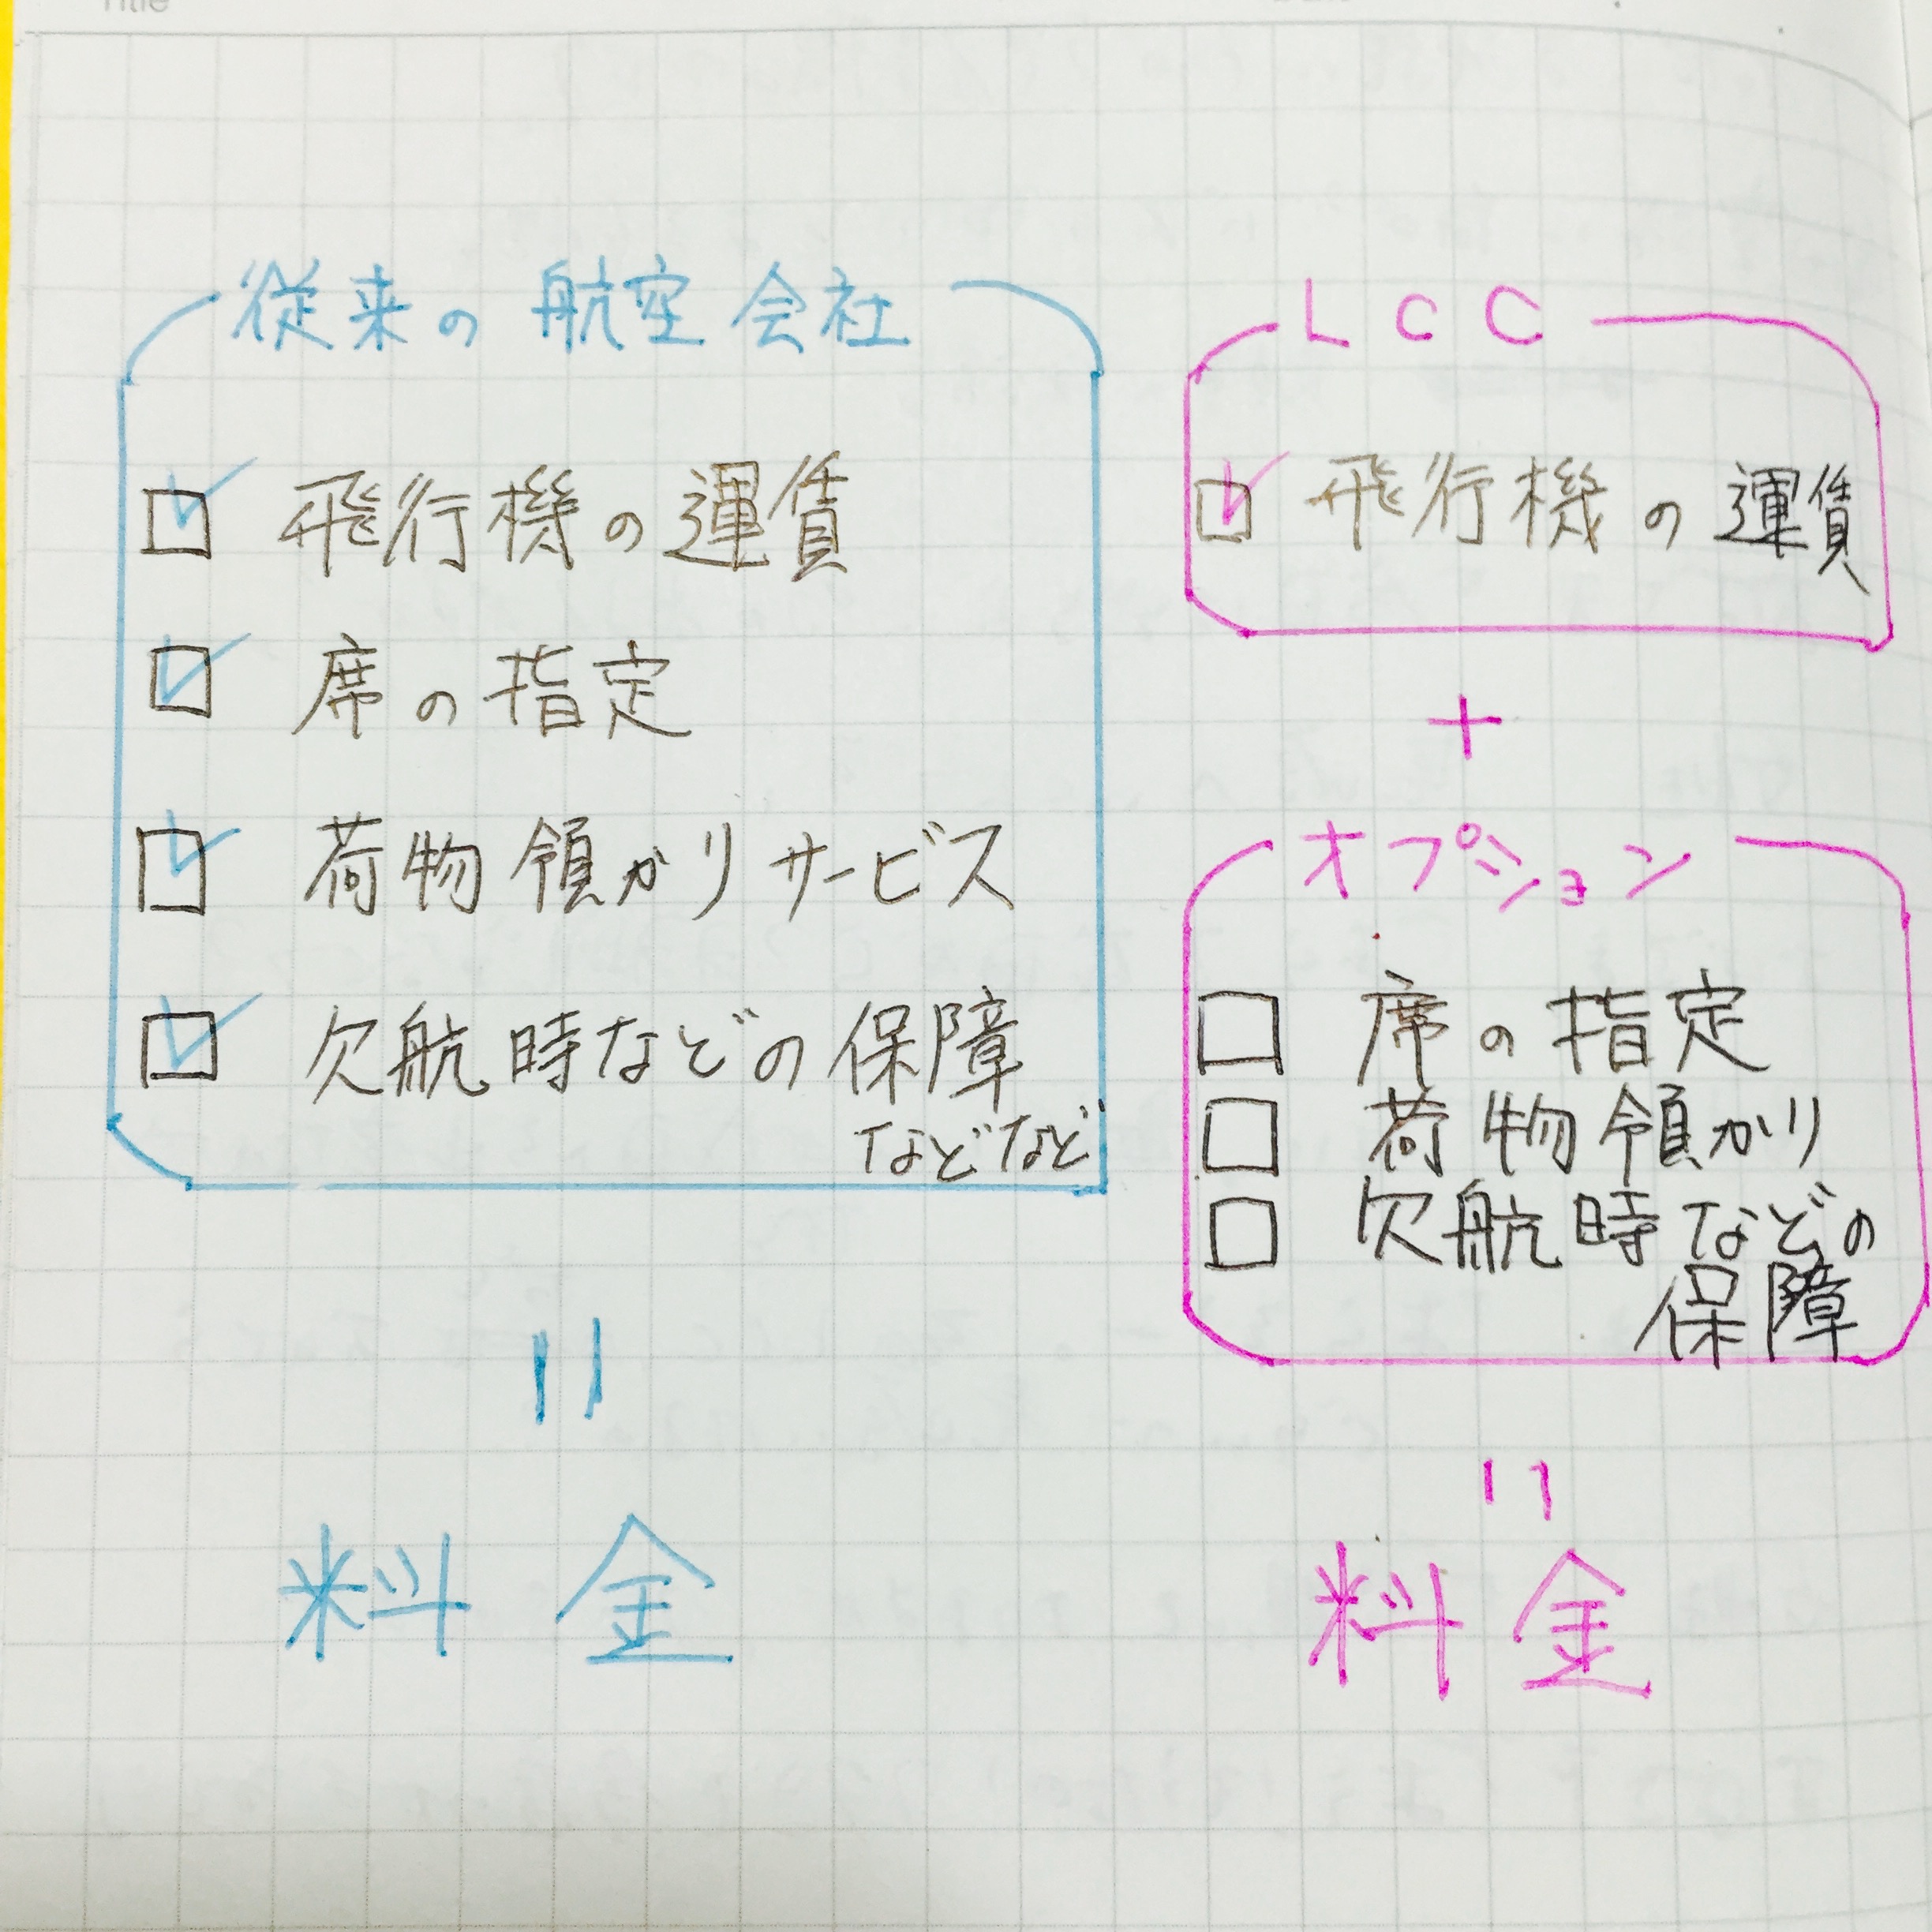 Title
従来の航空会社
☑ 飛行機の運賃
☑ 席の指定
☑ 荷物領かりサービス
☑ 欠航時などの保障
などなど
=
料金
LCC
☑ 飛行機の運賃
+
オプション
☐ 席の指定
☐ 荷物領かり
☐ 欠航時などの
保障
=
料金